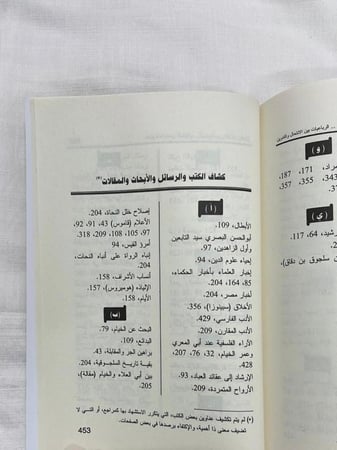 كشاف الكتب والرسائل والأبحاث والمقالات (*)
( أ )
الأبطال، 109.
أبوالحسن البصري سيد التابعين
وأول الزاهدين، 97.
إحياء علوم الدين، 94.
إخبار العلماء بأخبار الحكماء،
85، 164، 204.
أخبار مصر، 204.
الأخلاق (سبينوزا)، 356.
الأدب الفارسي، 429.
الأدب المقارن، 209.
الآراء الفلسفية عند أبي المعري
وعمر الخيام، 32، 76، 207،
428.
الإرشاد إلى عقائد العباد، 93.
الأرواح المتمردة، 209.
إصلاح خلل النحاة، 204.
الأعلام (قاموس) 43، 91، 92،
97، 105، 108، 209، 318.
أمرؤ القيس، 94.
إنباه الرواة على أنباه النحات،
204.
أنساب الأشراف، 158.
الإلياذة (هوميروس)، 157.
الأيام، 158.
(ب)
البحث عن الخيام، 79.
البدائع، 109.
براهين الجز والمقابلة، 43.
بقية تاريخ السلجوقية، 204.
بين أبي العلاء والخيام (مقالة)،
205.
(*) لم يتم تكشيف عناوين بعض الكتب، التي يتكرر الاستشهاد بها كمراجع، أو التي لا
تضيف معنى ذا أهمية، والإكتفاء برصدها في بعض الصفحات.
453
... الرباعيات بين الانتحال والتأثيرين
( و )
187، 171،
343،
357، 355،
( ي )
117، 64،
بن سلجوق بن دقاق)،